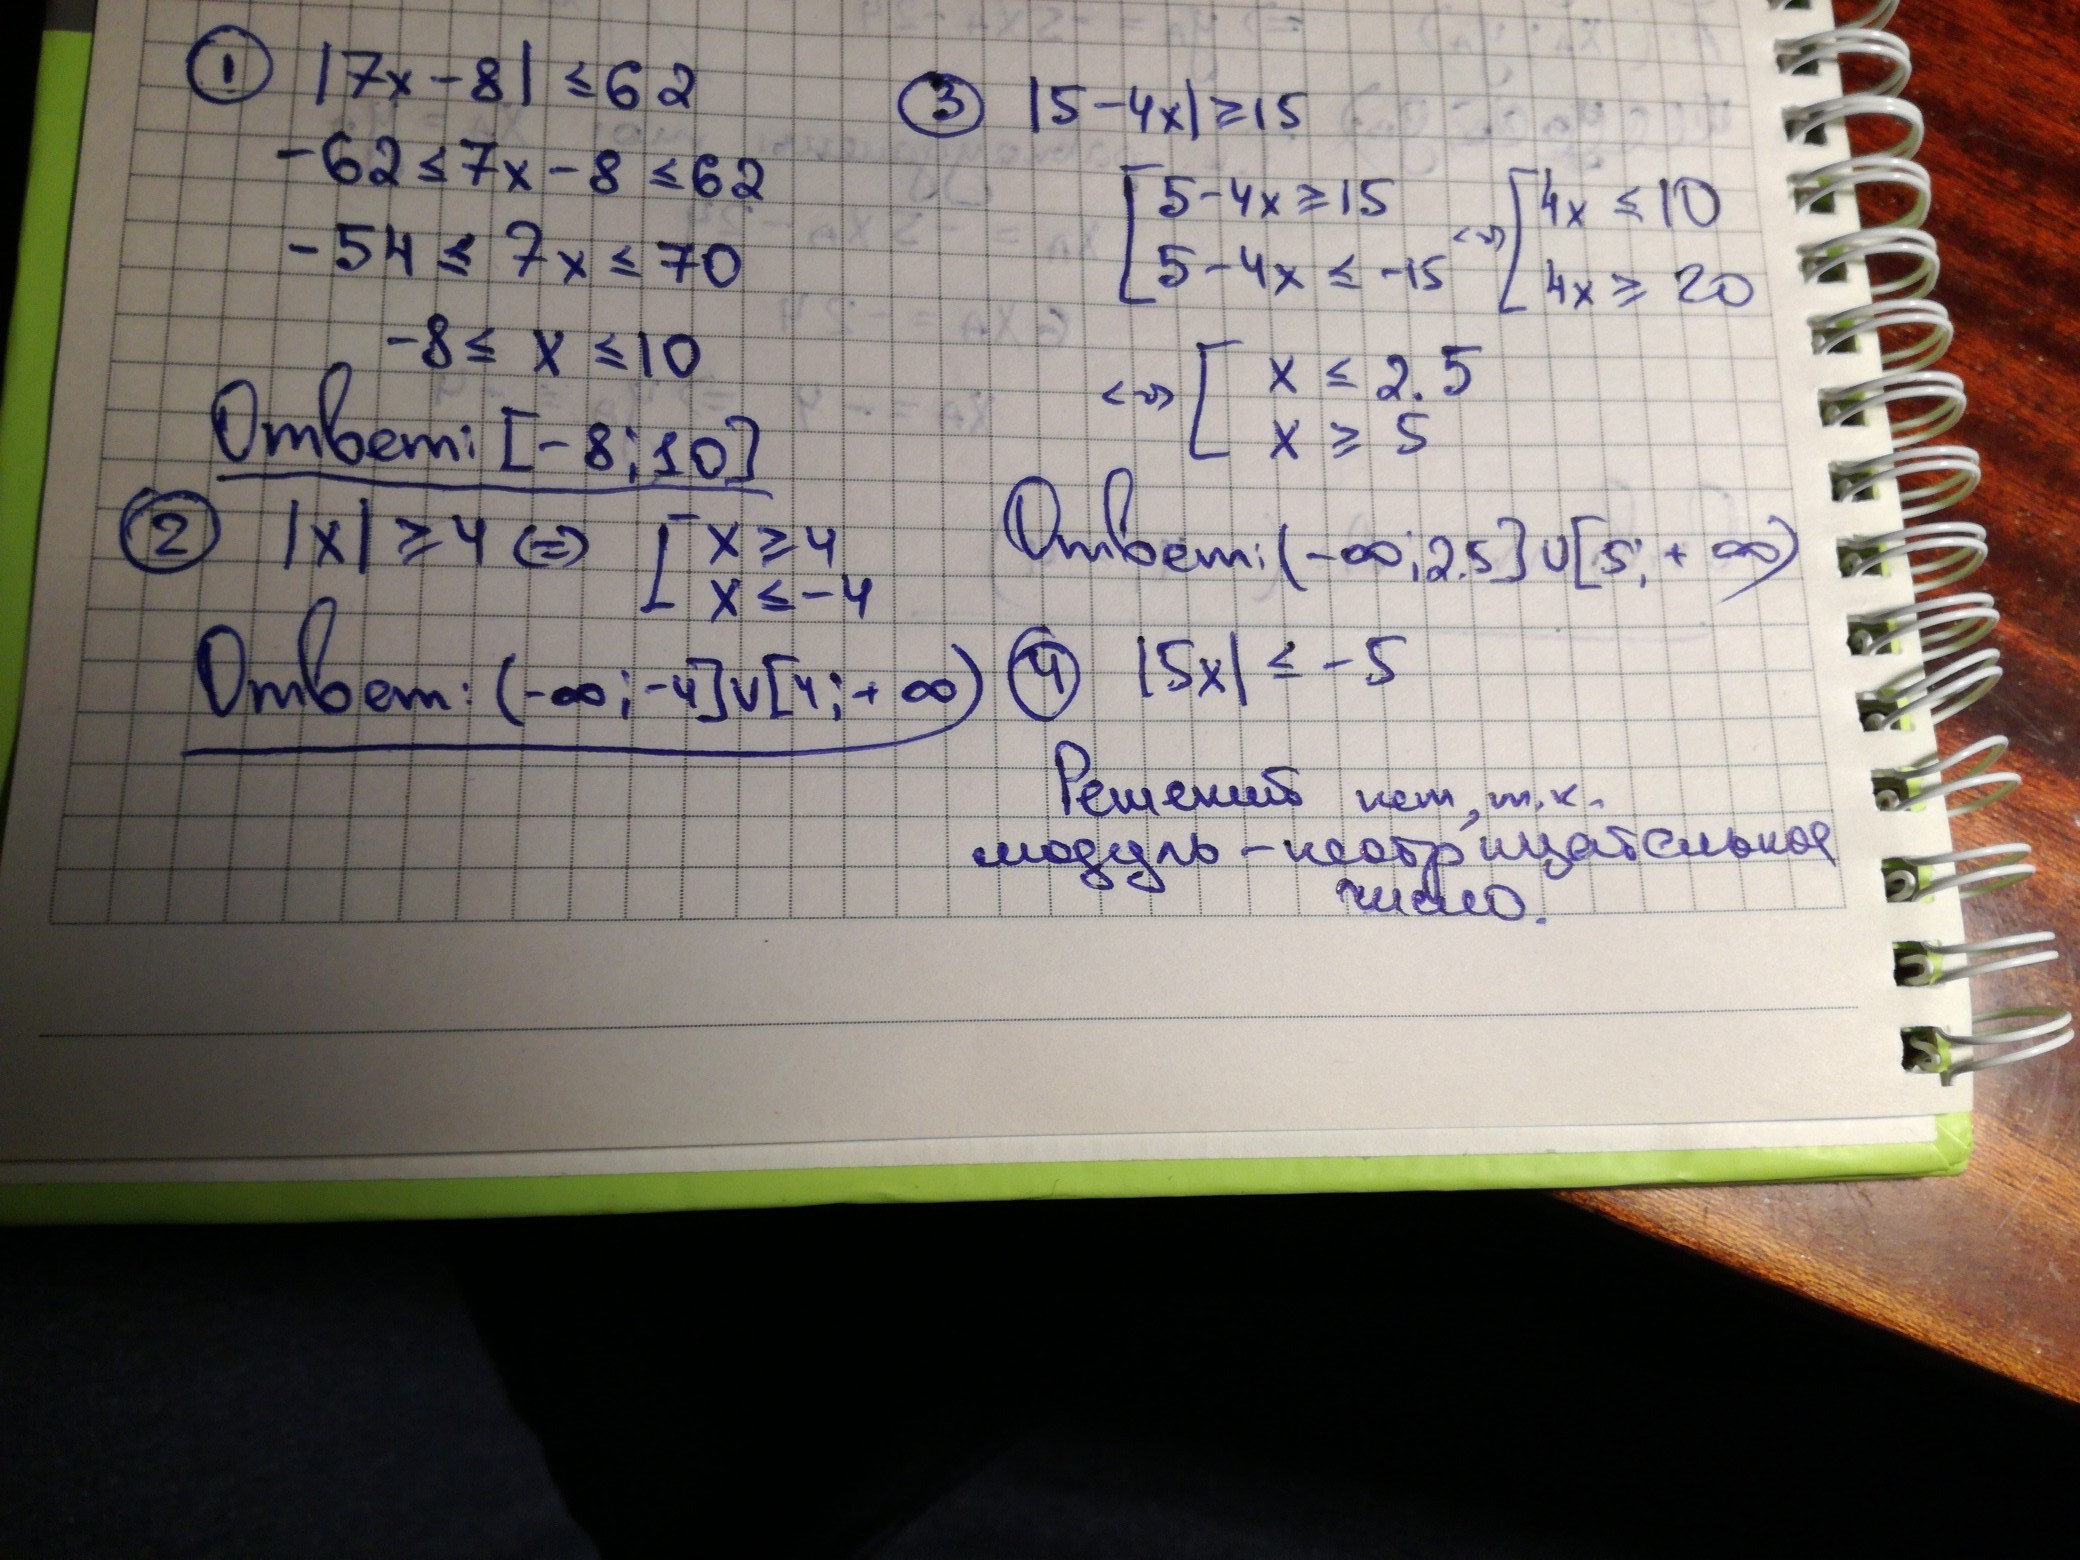 ① |7x-8| ≤ 62
-62 ≤ 7x-8 ≤ 62
-54 ≤ 7x ≤ 70
-8 ≤ x ≤ 10
Ответ: [-8; 10]
② |x| ≥ 4 <=> [ x ≥ 4
x ≤ -4
Ответ: (-∞; -4] ∪ [4; +∞)
③ |5-4x| ≥ 15
[ 5-4x ≥ 15 <=> [ 4x ≤ 10
5-4x ≤ -15 4x ≥ 20
<=> [ x ≤ 2.5
x ≥ 5
Ответ: (-∞; 2.5] ∪ [5; +∞)
④ |5x| ≤ -5
Решений нет, т.к.
модуль - неотрицательное
число.